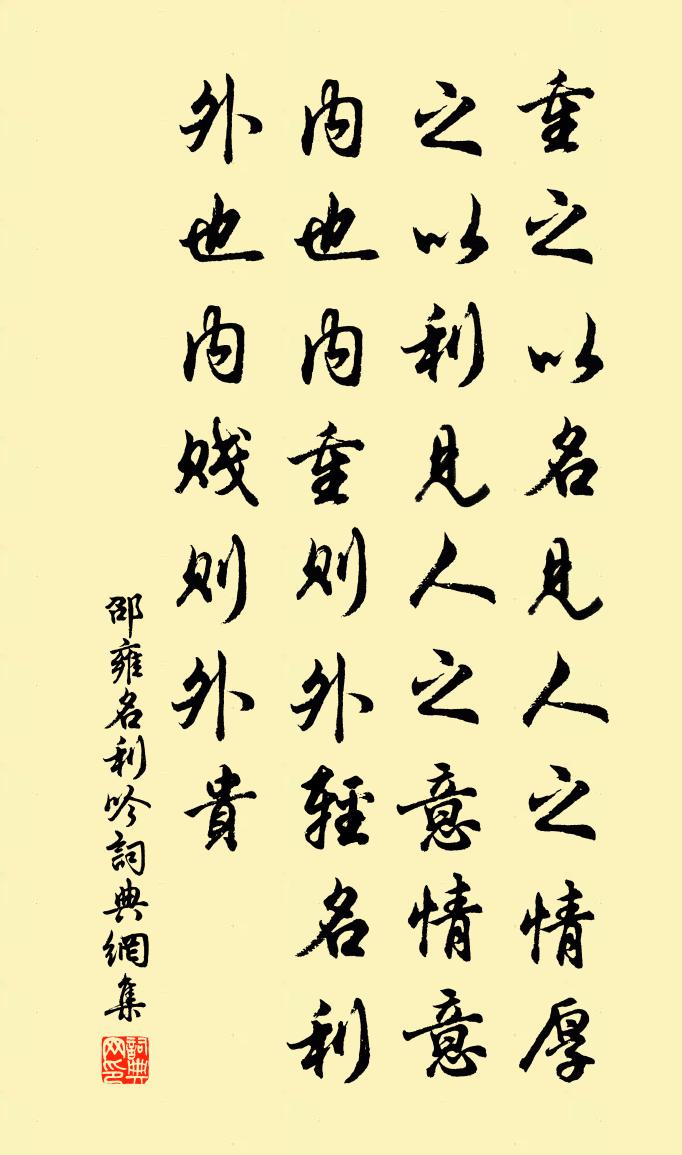 重之以名見人之情厚
之以利見人之意情意
内也内重則外輕名利
外也内贱則外貴
邵雍名利吟詞典網集
詞典网印